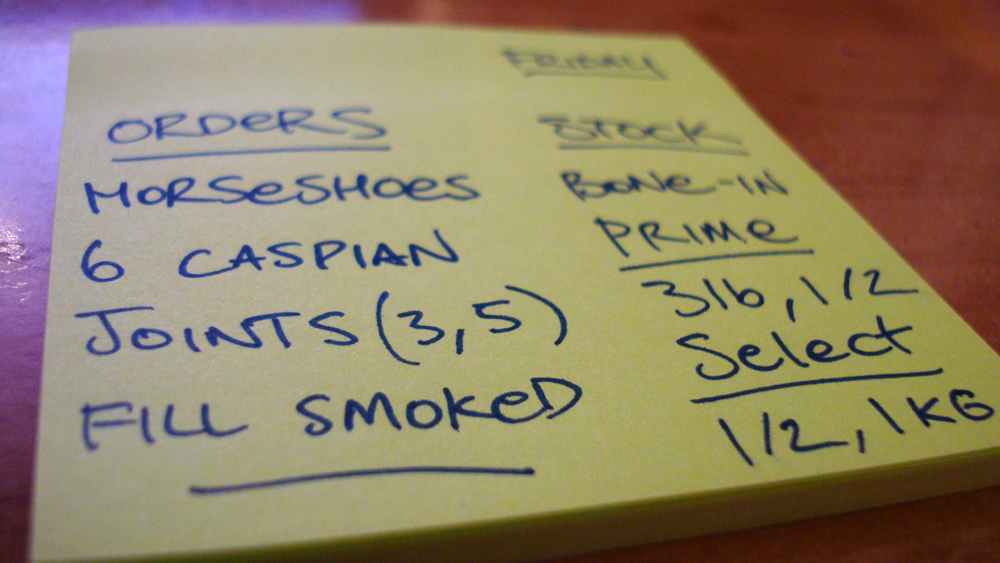 FRIDAY
ORDERS
HORSESHOES
6 CASPIAN
JOINTS (3,5)
FILL SMOKED
STOCK
BONE-IN
PRIME
3lb, 1/2
Select
1/2, 1KG